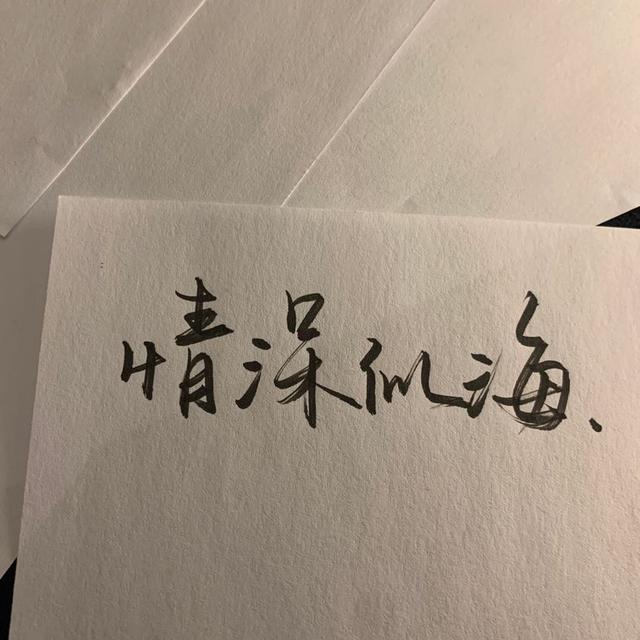 情深似海、